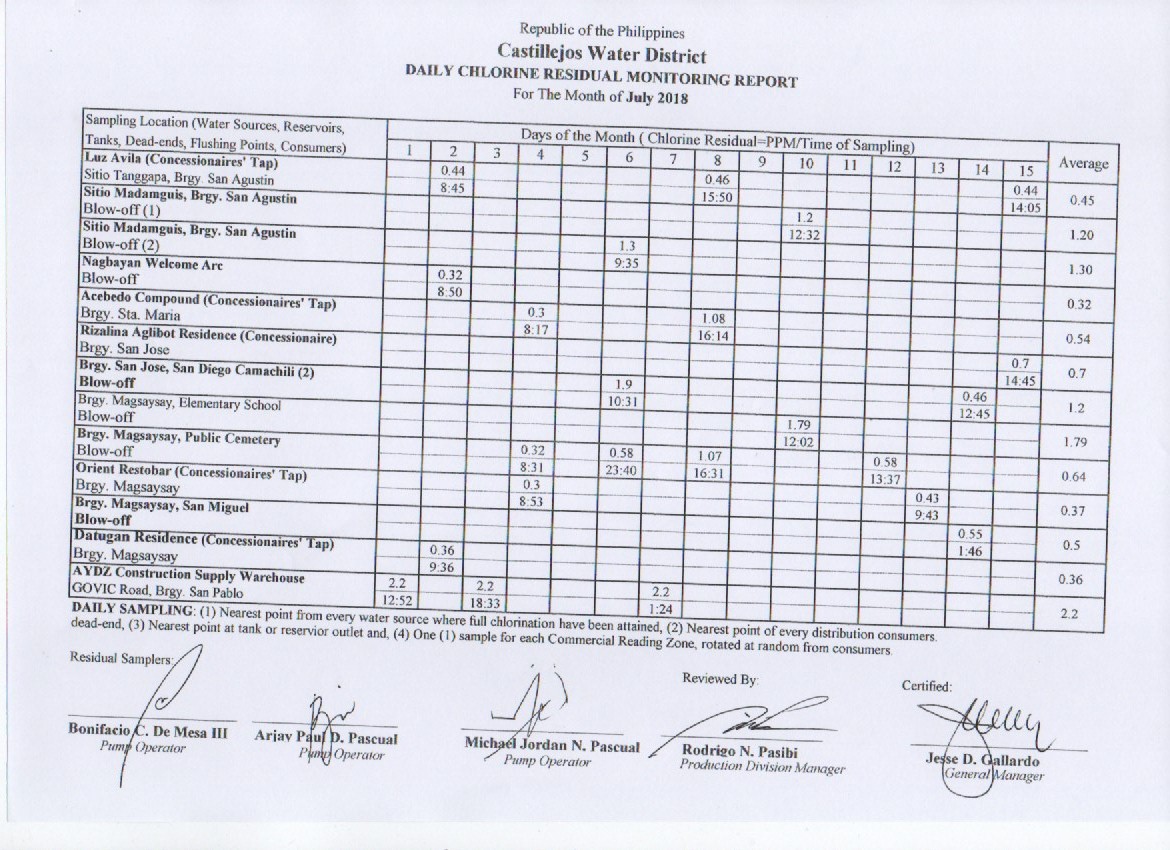 Republic of the Philippines
Castillejos Water District
DAILY CHLORINE RESIDUAL MONITORING REPORT
For The Month of July 2018
Sampling Location (Water Sources, Reservoirs,
Tanks, Dead-ends, Flushing Points, Consumers)
Days of the Month ( Chlorine Residual=PPM/Time of Sampling)
Average
1 2 3 4 5 6 7 8 9 10 11 12 13 14 15
Luz Avila (Concessionaires' Tap) 0.44 0.46 0.44 0.45
Sitio Tanggapa, Brgy. San Agustin 8:45 15:50 14:05
Sitio Madamguis, Brgy. San Agustin 1.2 1.20
Blow-off (1) 12:32
Sitio Madamguis, Brgy. San Agustin 1.3 1.30
Blow-off (2) 9:35
Nagbayan Welcome Arc 0.32 0.32
Blow-off 8:50
Acebedo Compound (Concessionaires' Tap) 0.3 1.08 0.54
Brgy. Sta. Maria 8:17 16:14
Rizalina Aglibot Residence (Concessionaire) 0.7 0.7
Brgy. San Jose 14:45
Brgy. San Jose, San Diego Camachili (2) 1.9 0.46 1.2
Blow-off 10:31 12:45
Brgy. Magsaysay, Elementary School 1.79 1.79
Blow-off 12:02
Brgy. Magsaysay, Public Cemetery 0.32 0.58 1.07 0.58 0.64
Blow-off 8:31 23:40 16:31 13:37
Orient Restobar (Concessionaires' Tap) 0.3 0.43 0.37
Brgy. Magsaysay 8:53 9:43
Brgy. Magsaysay, San Miguel 0.55 0.5
Blow-off 1:46
Datugan Residence (Concessionaires' Tap) 0.36 0.36
Brgy. Magsaysay 9:36
AYDZ Construction Supply Warehouse 2.2 2.2 2.2 2.2
GOVIC Road, Brgy. San Pablo 12:52 18:33 1:24
DAILY SAMPLING: (1) Nearest point from every water source where full chlorination have been attained, (2) Nearest point of every distribution consumers.
dead-end, (3) Nearest point at tank or reservior outlet and, (4) One (1) sample for each Commercial Reading Zone, rotated at random from consumers.
Residual Samplers:
Reviewed By:
Certified:
Bonifacio C. De Mesa III
Pump Operator
Arjay Paul D. Pascual
Pump Operator
Michael Jordan N. Pascual
Pump Operator
Rodrigo N. Pasibi
Production Division Manager
Jesse D. Gallardo
General Manager